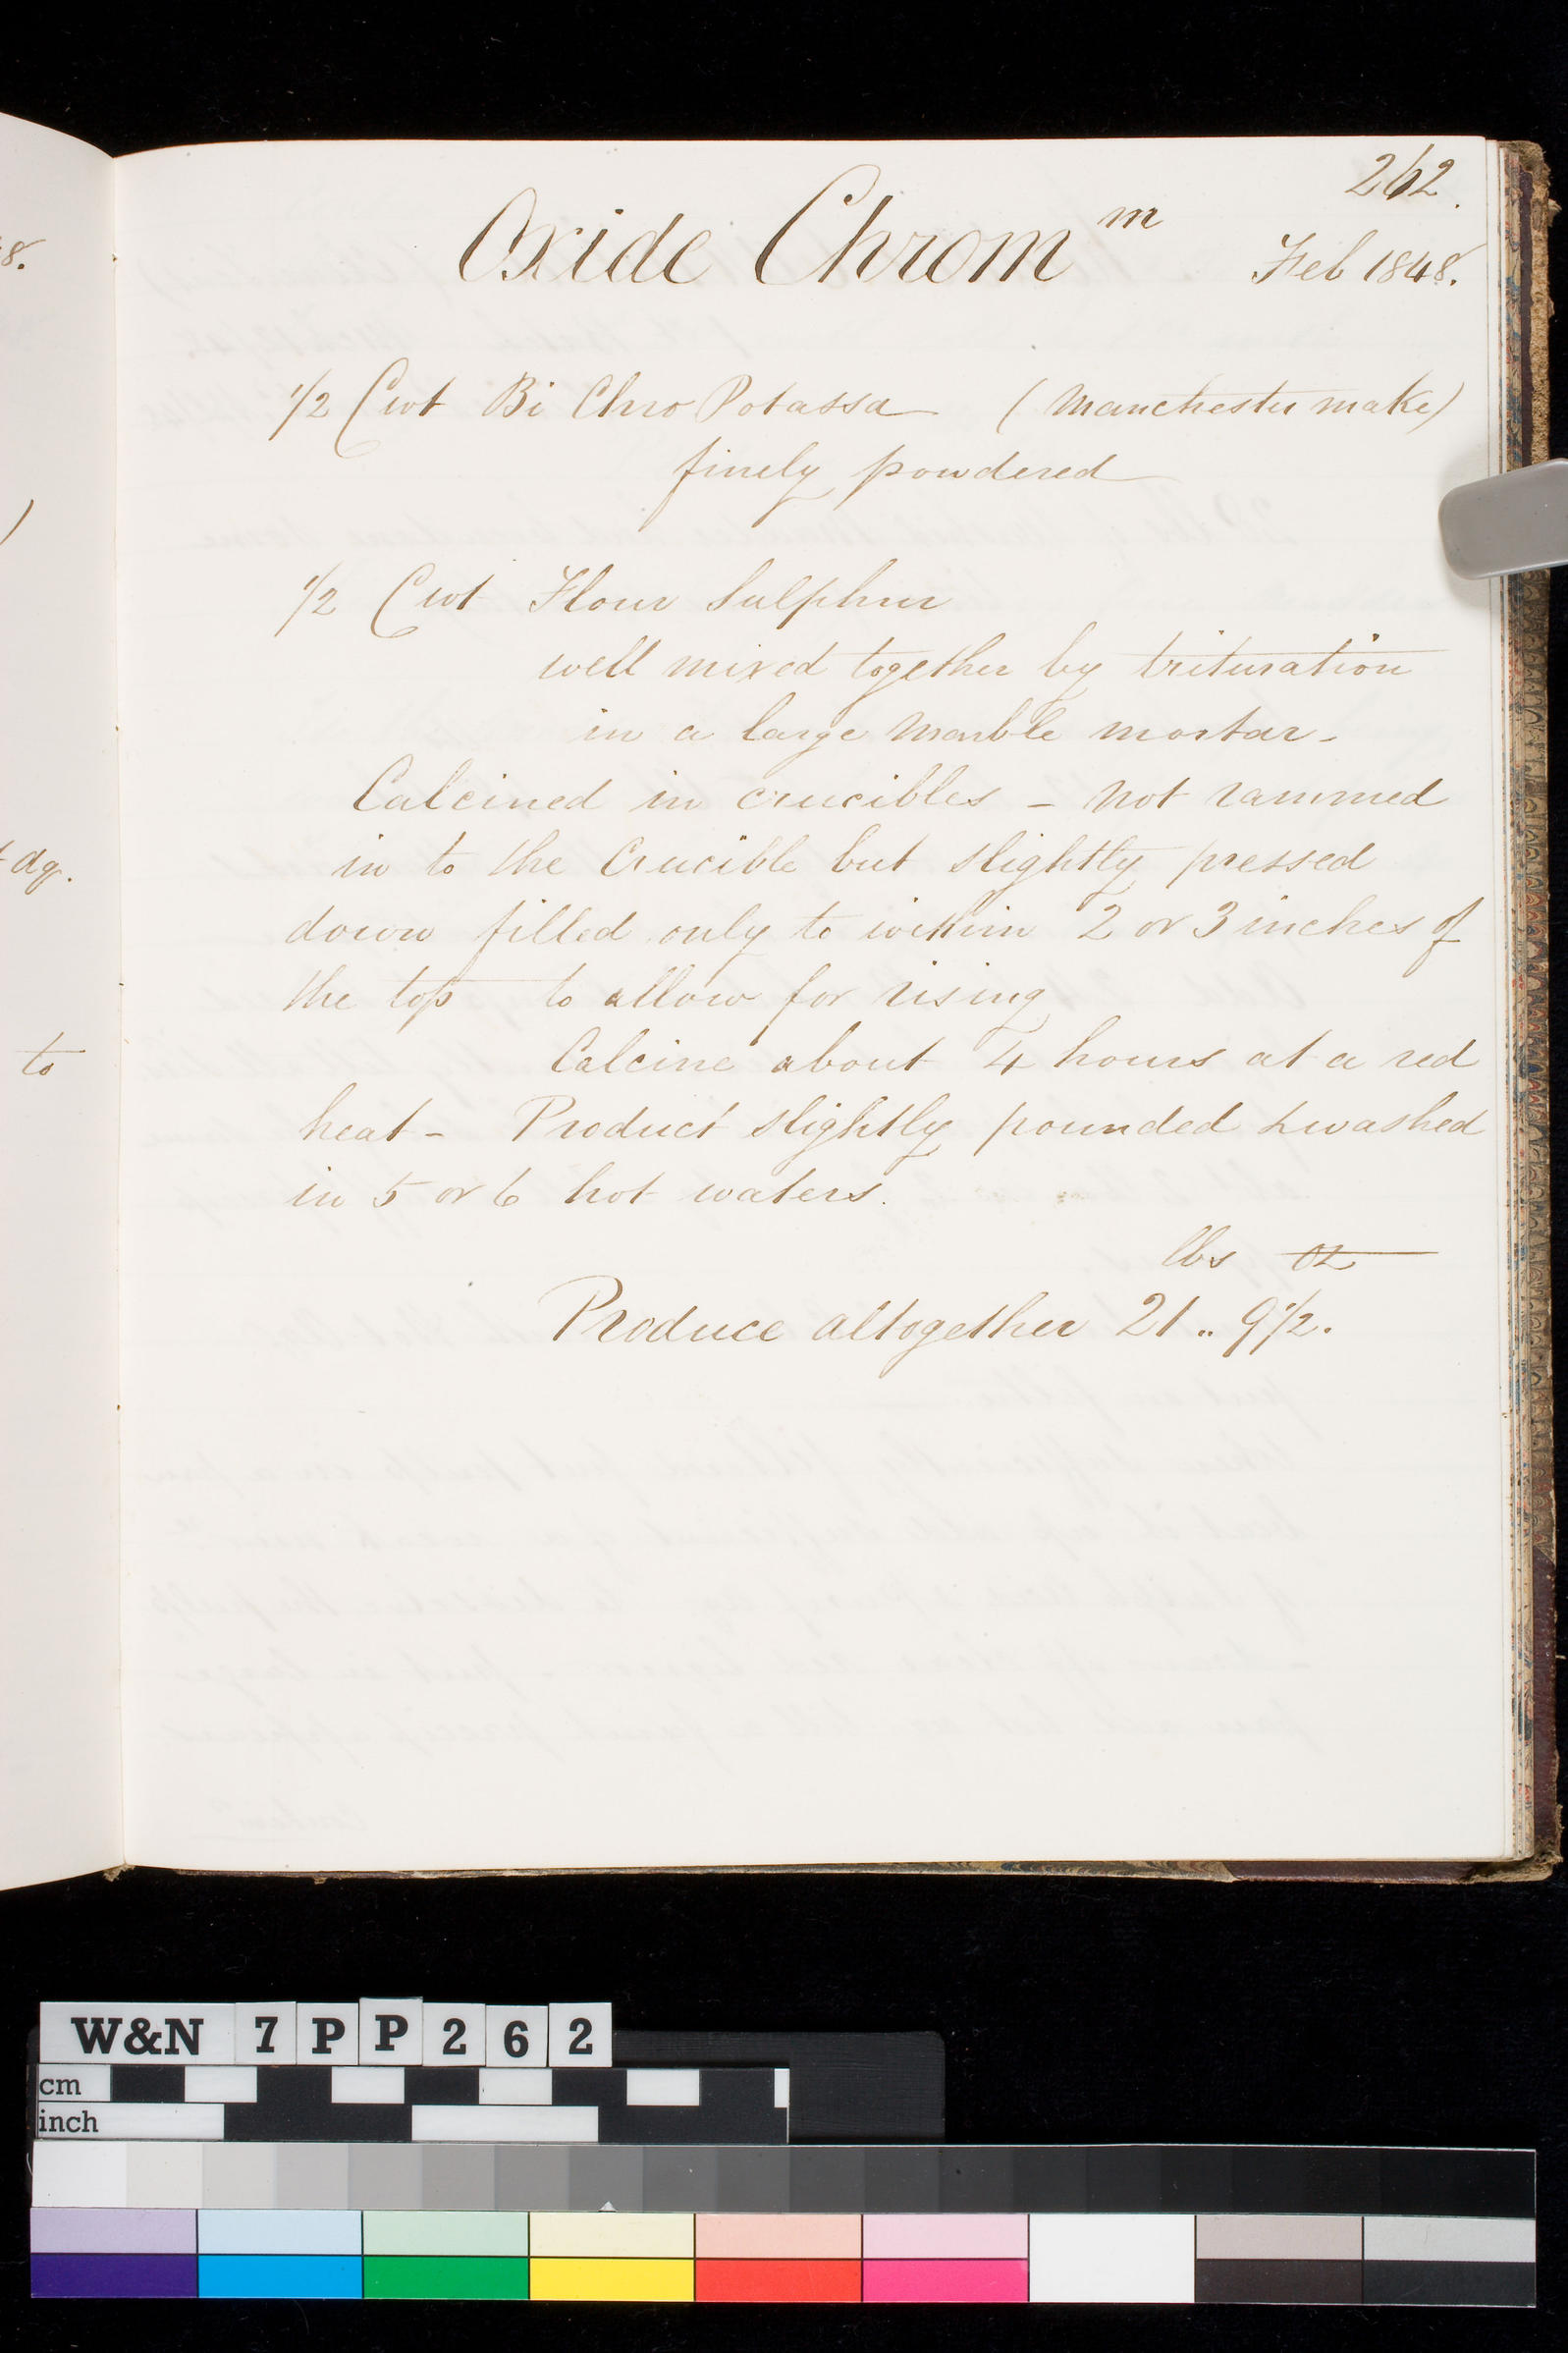 262.
Oxide Chrom^m
Feb 1848.
1/2 Cwt Bi Chro Potassa (Manchester make)
finely powdered
1/2 Cwt Flour Sulphur
well mixed together by trituration
in a large Marble mortar -
Calcined in crucibles - not rammed
in to the Crucible but slightly pressed
down filled only to within 2 or 3 inches of
the top to allow for rising
Calcine about 4 hours at a red
heat - Product slightly pounded & washed
in 5 or 6 hot waters.
lbs oz
Produce altogether 21 .. 9 1/2.
8.
)
dg.
to
W&N 7 P P 2 6 2
cm
inch